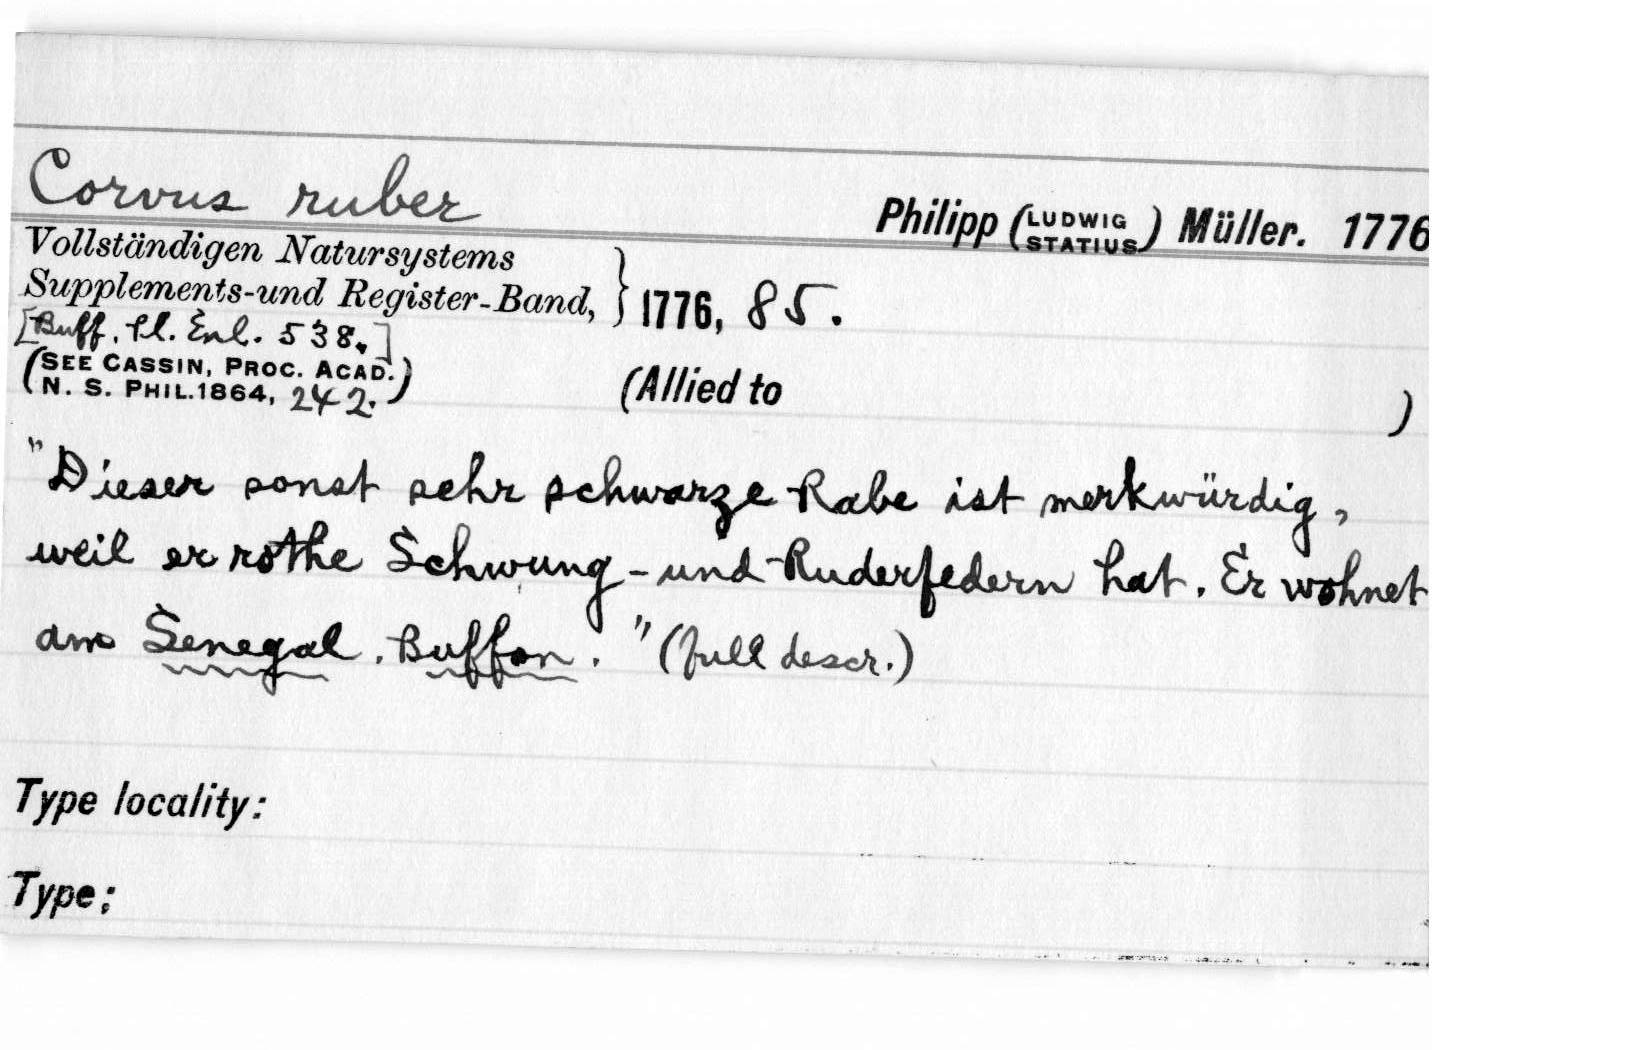 Corvus ruber
Philipp (LUDWIG STATIUS) Müller. 1776
Vollständigen Natursystems
Supplements-und Register-Band, } 1776, 85.
[Buff. Pl. Enl. 538.]
(SEE CASSIN, PROC. ACAD.
N. S. PHIL.1864, 242.)
(Allied to )
"Dieser sonst sehr schwarze Rabe ist merkwürdig,
weil er rothe Schwung-und Ruderfedern hat. Er wohnet
am Senegal. Buffon." (full descr.)
Type locality:
Type: